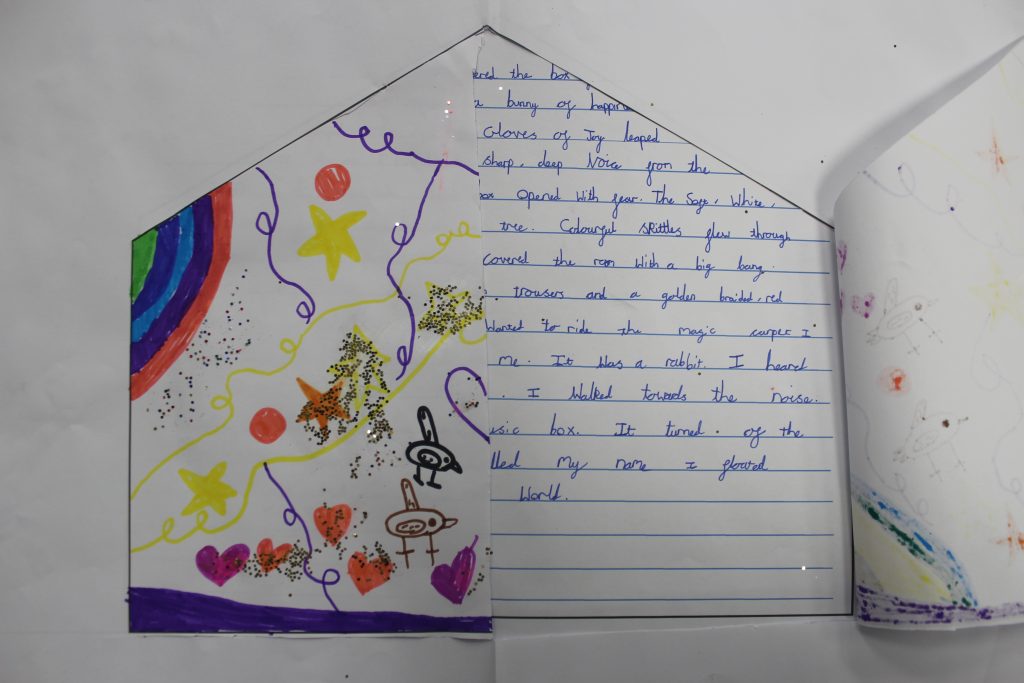 ered the box
a bunny of happin
Gloves of Joy leaped
sharp, deep Noice from the
box Opened With fear. The Soft, White,
tree. Colourful Skittles flew through
covered the room With a big bang.
trousers and a golden braided, red
Wanted to ride the magic carpet I
me. It Was a rabbit. I heard
. I Walked towards the noise.
usic box. It turned. of the
lled my name I floated
World.